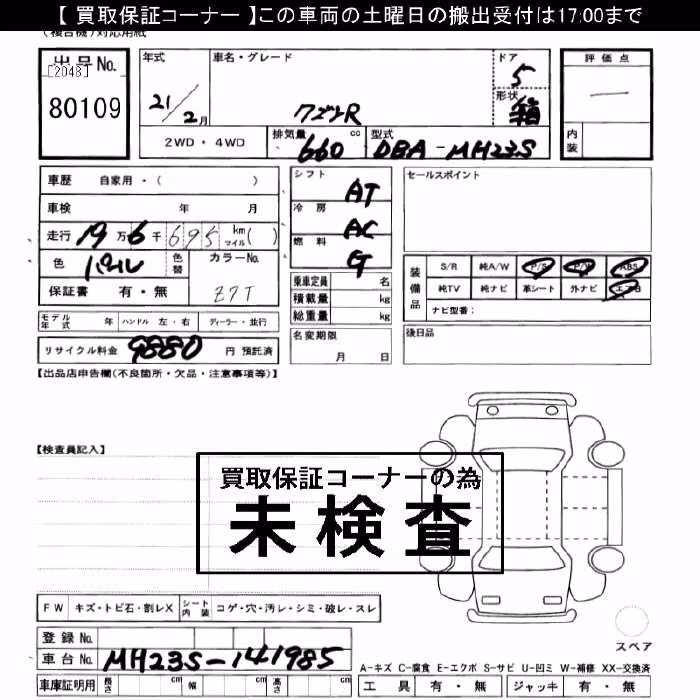 【 買取保証コーナー 】この車両の土曜日の搬出受付は17:00まで
(複合機)対応用紙
出品No.
[2048]
80109
年式
21/2月
車名・グレード
ワゴンR
ドア
5
形状
箱
評価点
―
内装
2WD ・ 4WD
排気量
660 cc
型式
DBA-MH23S
車歴 自家用・( )
車検 年 月
走行 19万6千695 km マイル( )
色 パール 色替 カラーNo. Z7T
保証書 有・無
シフト AT
冷房 AC
燃料 G
乗車定員 名
積載量 kg
総重量 kg
セールスポイント
装備品
S/R 純A/W P/S P/W ABS
純TV 純ナビ 革シート 外ナビ エアB
ナビ型番:
モデル年式 年 ハンドル 左・右 ディーラー・並行
リサイクル料金 9880 円 預託済
名変期限
月 日
後日品
【出品店申告欄(不良箇所・欠品・注意事項等)】
【検査員記入】
買取保証コーナーの為
未検査
FW キズ・トビ石・割レX シート内装 コゲ・穴・汚レ・シミ・破レ・スレ
スペア
登録No.
車台No. MH23S-141985
A-キズ C-腐食 E-エクボ S-サビ U-凹ミ W-補修 XX-交換済
車庫証明用 長さ cm 幅 cm 高さ cm
工具 有・無 ジャッキ 有・無